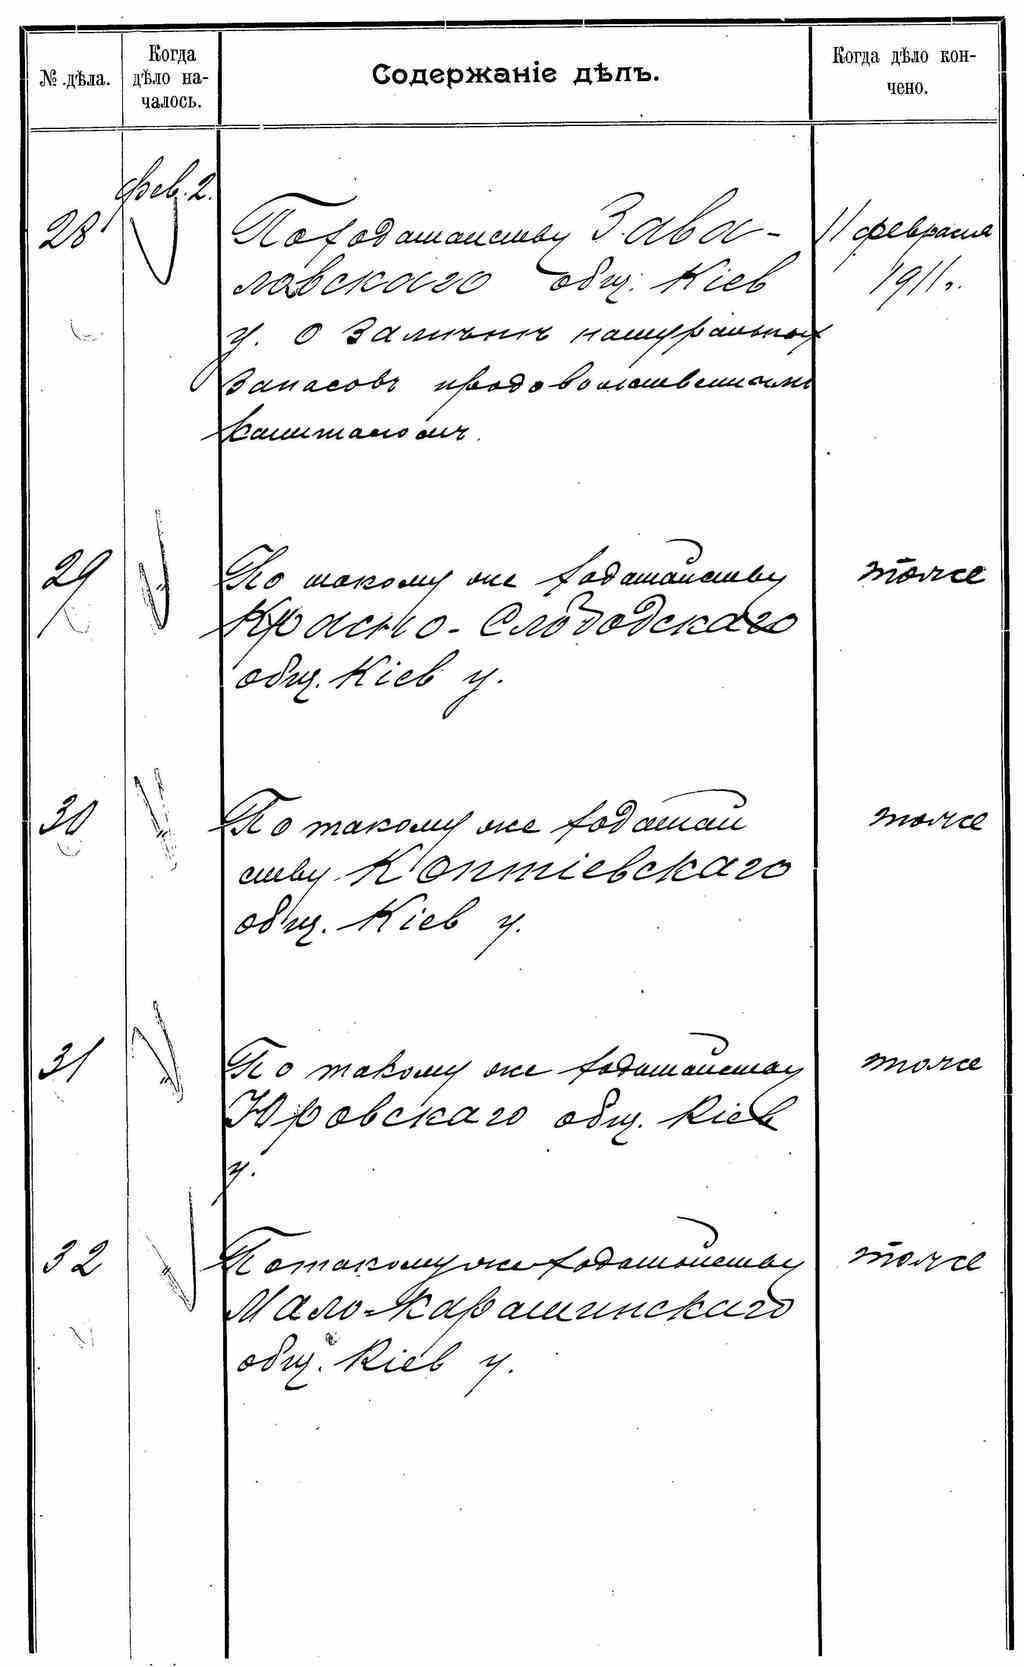 № дѣла.
Когда
дѣло на-
чалось.
Содержаніе дѣлъ.
Когда дѣло кон-
чено.
28
Фев. 2.
По ходатайству Зава-
ловскаго общ. Кіев
у. о замѣнѣ натуральных
запасовъ продовольственнымъ
капиталомъ.
11 февраля
1911 г.
29
"
По такому же ходатайству
Красно-Слободскаго
общ. Кіев у.
тоже
30
"
По такому же ходатай
ству Коптіевскаго
общ. Кіев у.
тоже
31
"
По такому же ходатайству
Юровскаго общ. Кіев
у.
тоже
32
"
По такому же ходатайству
Мало-Карашинскаго
общ. Кіев у.
тоже